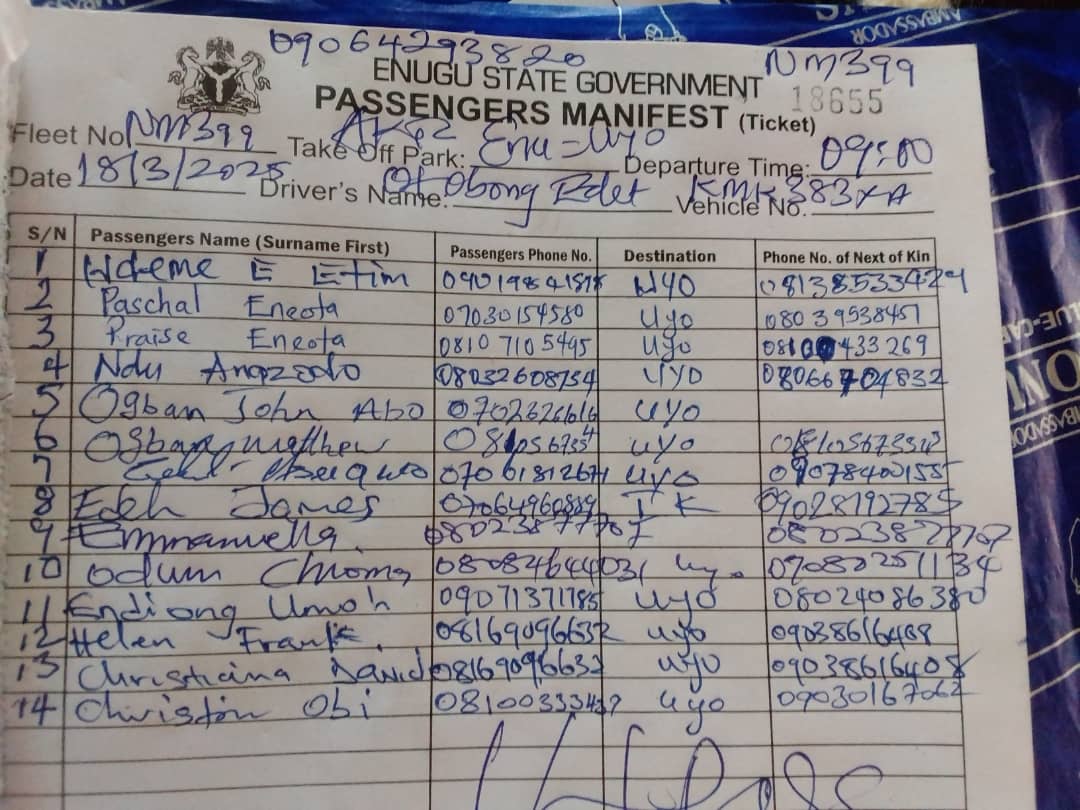 AMBASSADOR
09064293820
NM399
ENUGU STATE GOVERNMENT
18655
PASSENGERS MANIFEST (Ticket)
Fleet No NM399 Take Off Park: Enu - Uyo Departure Time: 09:00
Date 18/3/2025 Driver's Name: Obong Edet Vehicle No. KMK383XA
S/N Passengers Name (Surname First) Passengers Phone No. Destination Phone No. of Next of Kin
1 E Etim Uyo 08138533429
2 Paschal Eneota 07030154580 Uyo 08039538457
3 Praise Eneota 0810 710 5495 Uyo 433 269
4 Ndu 08032608754 UYO 08066704832
5 Ogban John Abo 0702326616 uyo
6 Ogban matthew uyo
7 07061812671 uyo 09078400155
8 Edeh James 07064960889 I K 09028192785
9 Emmanuella 08023877707 08023877707
10 odum Chioma 08082464403 uyo 07080251134
11 Endiong Umoh 09071371785 uyo 08024086380
12 Helen Frank. 08169096632 uyo 09038616408
13 Christiana David 08169096632 uyo 09038616408
14 Christon Obi uyo 09030167062
AMBASSADOR